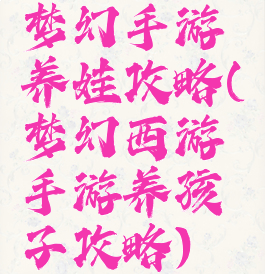 梦幻手游
养娃攻略(
梦幻西游
手游养孩
子攻略)